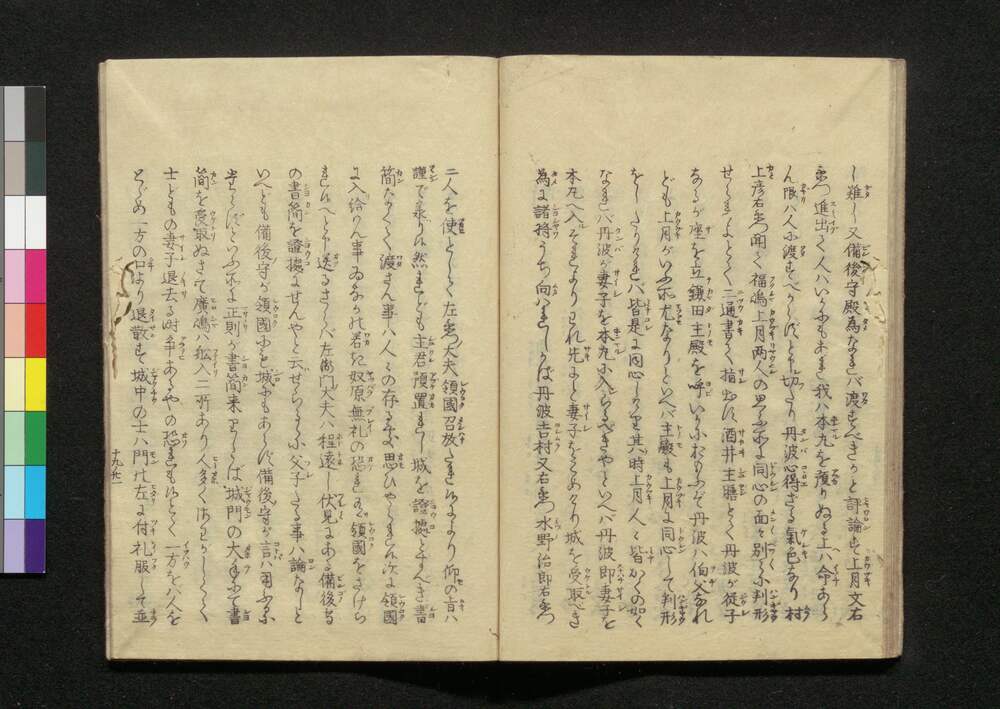 し難し又備後守殿為なれバ渡すべきかと評論す上月文右
衛門進出て人ハいかにもあれ我ハ本丸を預りぬる上ハ命あら
ん限ハ人に渡すべからずとぞ切たり丹波心得ざる氣色なり村
上彦右衛門聞て福嶋上月両人の思ふ所に同心の面々別に判形
せられよとて二通書て指出す酒井主膳とて丹波が従子
あるが座を立鎌田主殿を呼いかにおもふぞ丹波ハ伯父なれ
ども上月がいふ所尤なりといへバ主殿も上月に同心して判形
をしたりければ皆是に同心しけり其時上月人々皆かくの如く
なれバ丹波が妻子を本丸に入らるべきやといへバ丹波即妻子を
本丸へ入それより われ先にと妻子をこめたり城を受取べき
為に諸将うち向ハれしかば丹波吉村又右衛門水野治郎右衛門
二人を使として左衛門大夫領國召放たれぬるより仰の旨ハ
謹で承りぬ然れども主君預置れし城を證據とすべき書
簡なくして渡さん事ハ人々の存る所思ひやられぬ次に領國
に入給りん事 の君に奴原無礼の恐れ 領國をさけら
れんへと申送るさらバ左衛門大夫ハ程遠し伏見にある備後守
の書簡を證據にせんやと云せらるるに父子たる事ハ論なしと
いへども備後守が領國にも城にもあらず備後守が言ハ用ふるに
足らずといふ所に正則が書簡来りしかば城門の大手にて書
簡を受取ぬさて廣嶋ハ舩入二所あり人多く ハせかしとて
士どもの妻子退去る時争あるべきや恐れもぬとて一方をバ人を
とゞめ一方の口より退散す城中の士ハ門の左に付礼服して並
十九ノ廿一